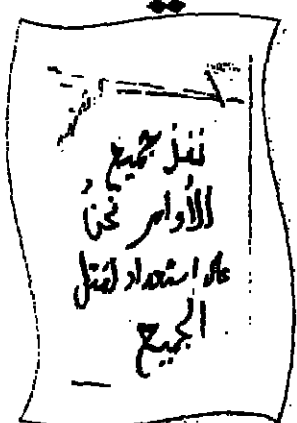 نفذ جميع
الأوامر نحنُ
على استعداد لقتل
الجميع